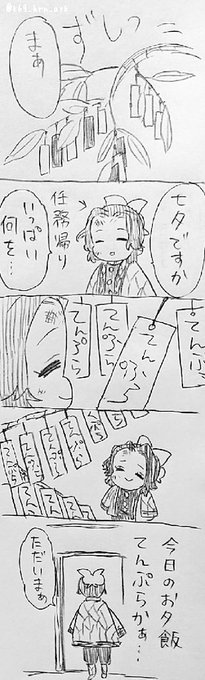 ずしっ
まぁ
七夕ですか
任務帰り
いっぱい
何を…
てんぷら
てんぷら
てんぷら
てんぷら
てんぷら
てんぷら
てんぷら
てんぷら
今日のお夕飯
てんぷらかぁ…
ただいまぁ